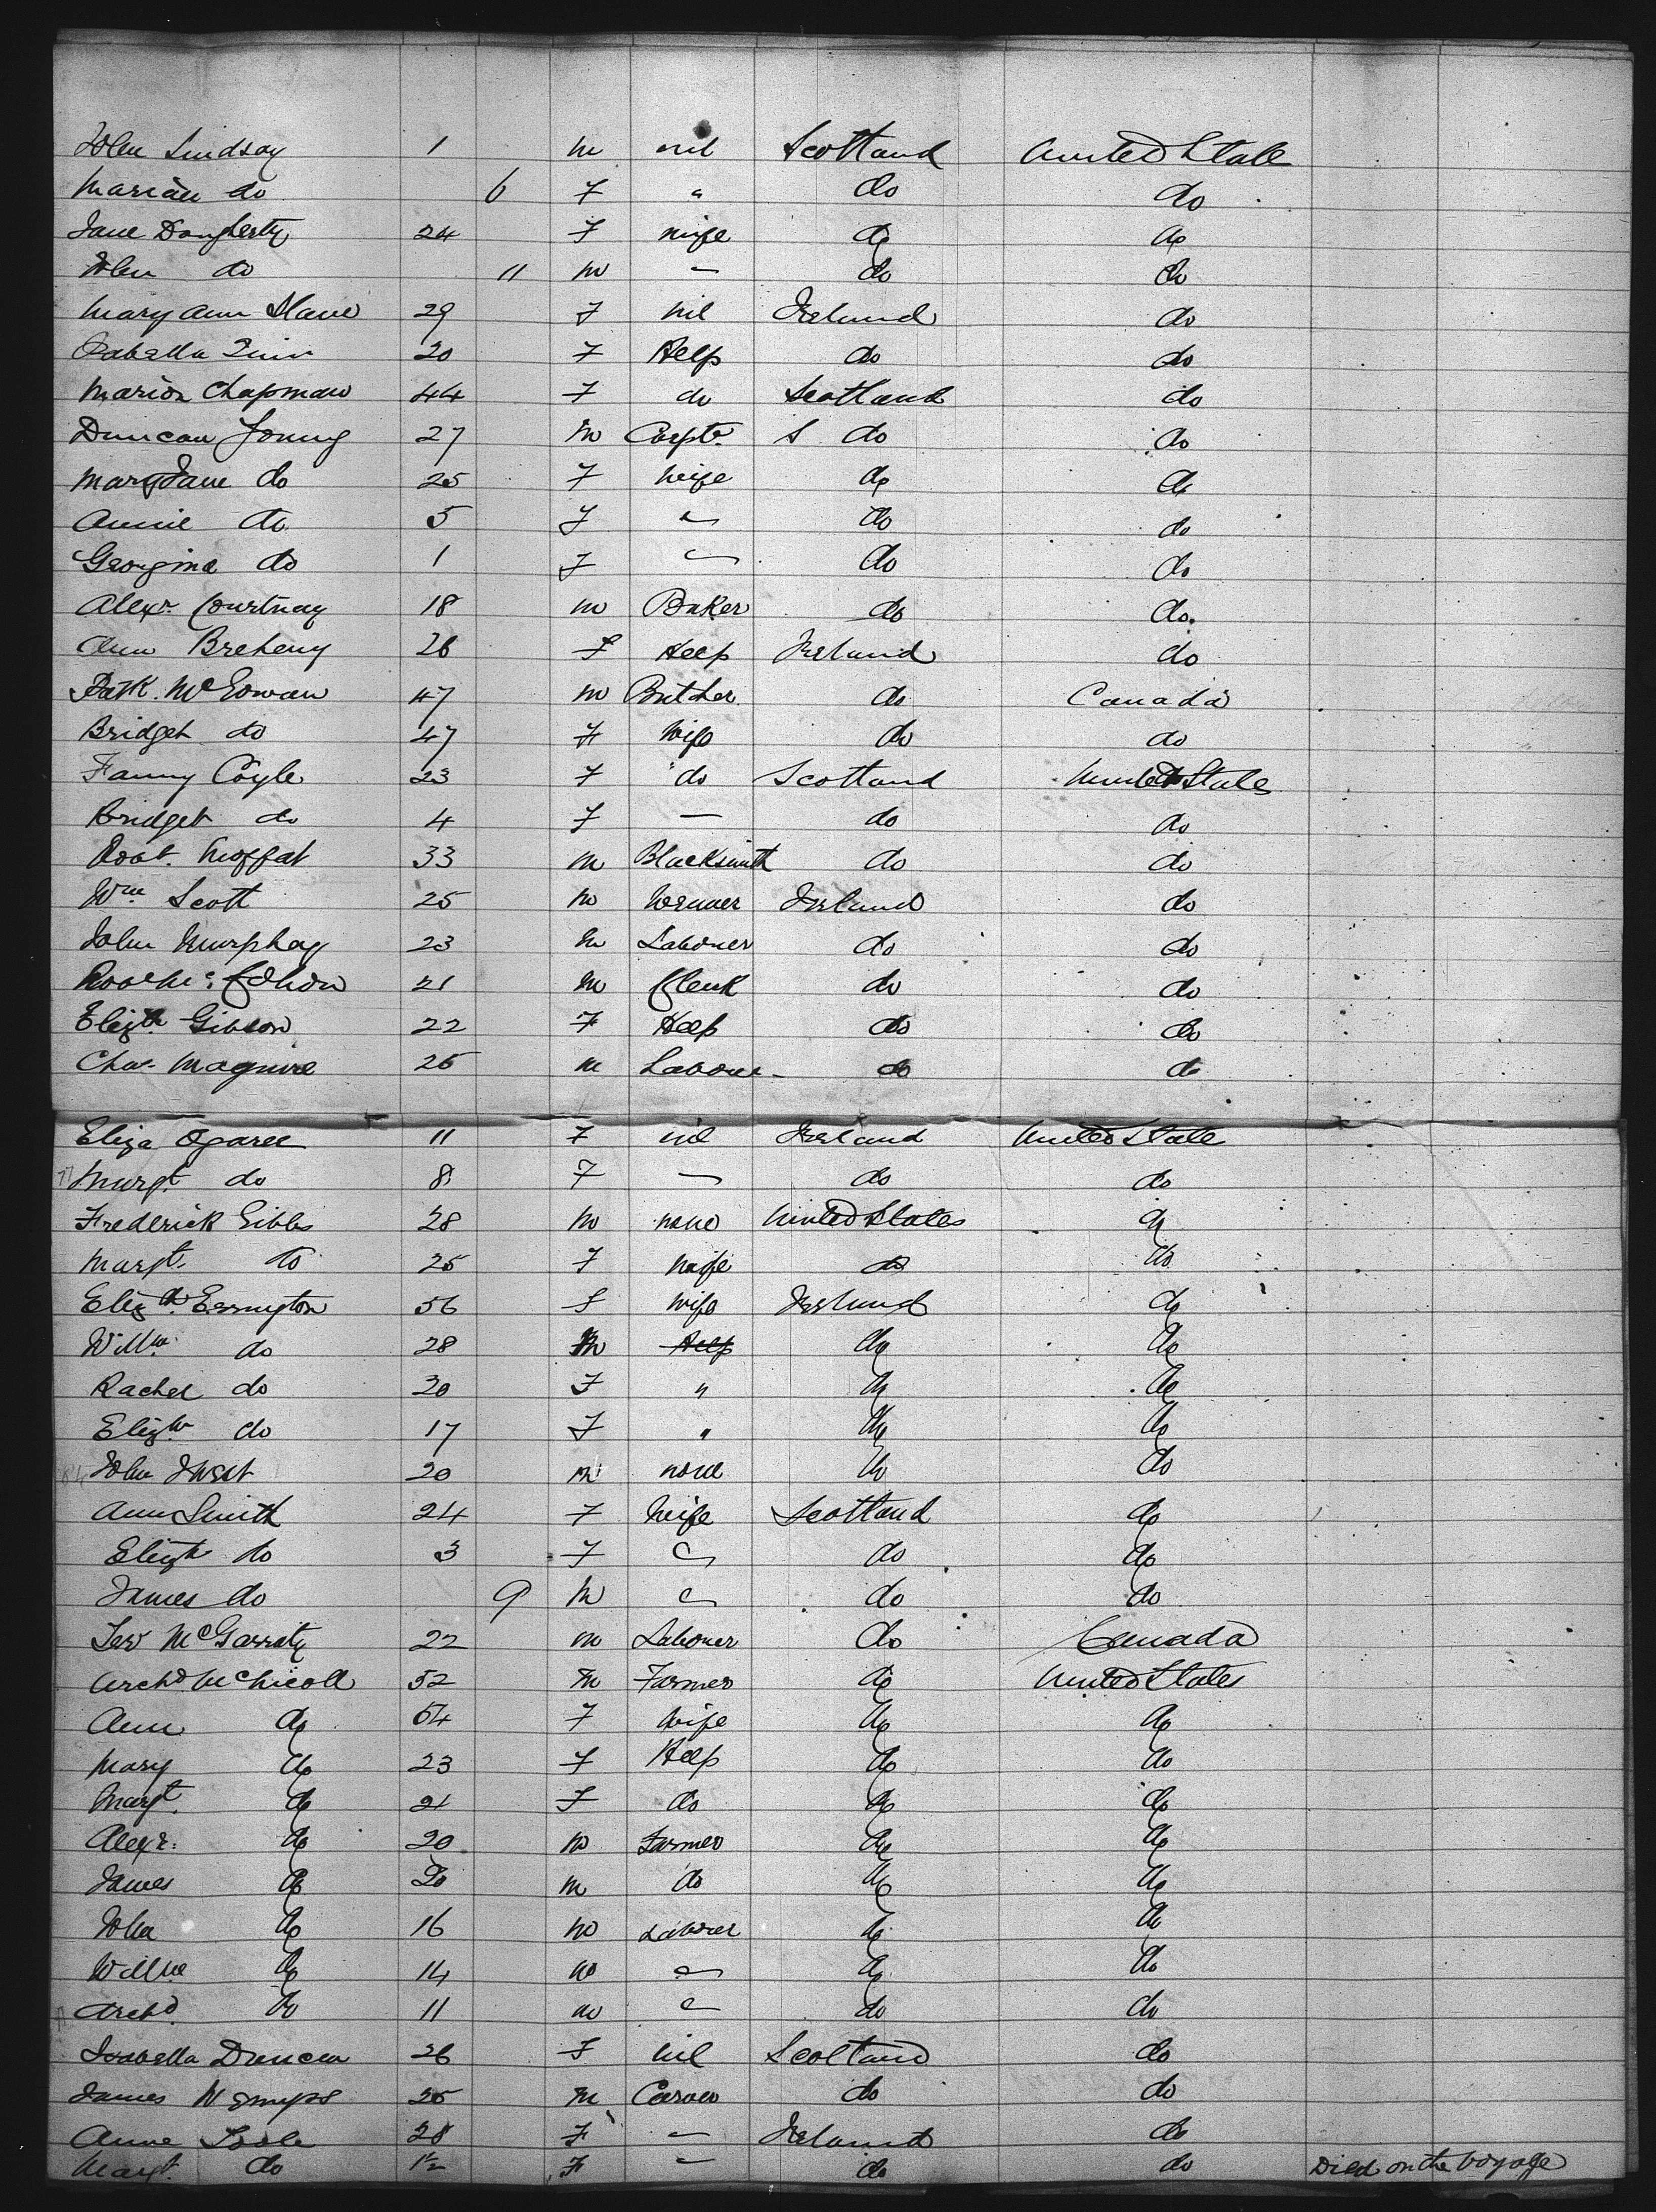 John Lindsay 1 m nil Scotland United State
Marian do 6 F " do do
Jane Dougherty 24 F wife do do
John do 11 m — do do
Mary Ann 29 F nil Ireland do
Isabella 20 F Help do do
Marion Chapman 44 F do Scotland do
Duncan Young 27 m Carptr S do do
Mary Jane do 25 F wife do do
Annie do 5 F do do
Georgina do 1 F do do
Alexr. Courtnay 18 m Baker do do.
Ann Breheny 26 F Help Ireland do
Patk. McGowan 47 m Butcher do Canada
Bridget do 47 F wife do do
Fanny Coyle 23 F do Scotland United States
Bridget do 4 F — do do
Robt. Moffat 33 m Blacksmith do do
Wm Scott 25 m Ireland do
John Murphay 23 m Labouer do do
21 m Clerk do do
Elizth Gibson 22 F Help do do
Chas. Maguire 25 m Laboue- do do
Eliza Ogaree 11 F nil Ireland United State
Margt. do 8 F — do do
Frederick Gibbs 28 m none United States do
Margt. do 25 F wife do do
Elizth. Errington 56 F wife Ireland do
Willm. do 28 m Help do do
Rachel do 20 F " do do
Elizth do 17 F " do do
John 20 m none do do
Ann Smith 24 F Wife Scotland do
Elizth do 3 F do do
James do 9 m do do
McGarraty 22 m Labouer do Canada
Archd McNicoll 52 m Farmer do United States
Ann do 54 F wife do do
Mary do 23 F Help do do
Margt. do 21 F do do do
Alexr. do 20 m Farmer do do
James do 20 m do do do
John do 16 m Labouer do do
Willm do 14 m do do
Archd. do 11 m do do
Isabella Duncan 26 F nil Scotland do
James 25 m Carver do do
Anne 28 F — Ireland do
Margt. do 1½ F do do Died on the Voyage